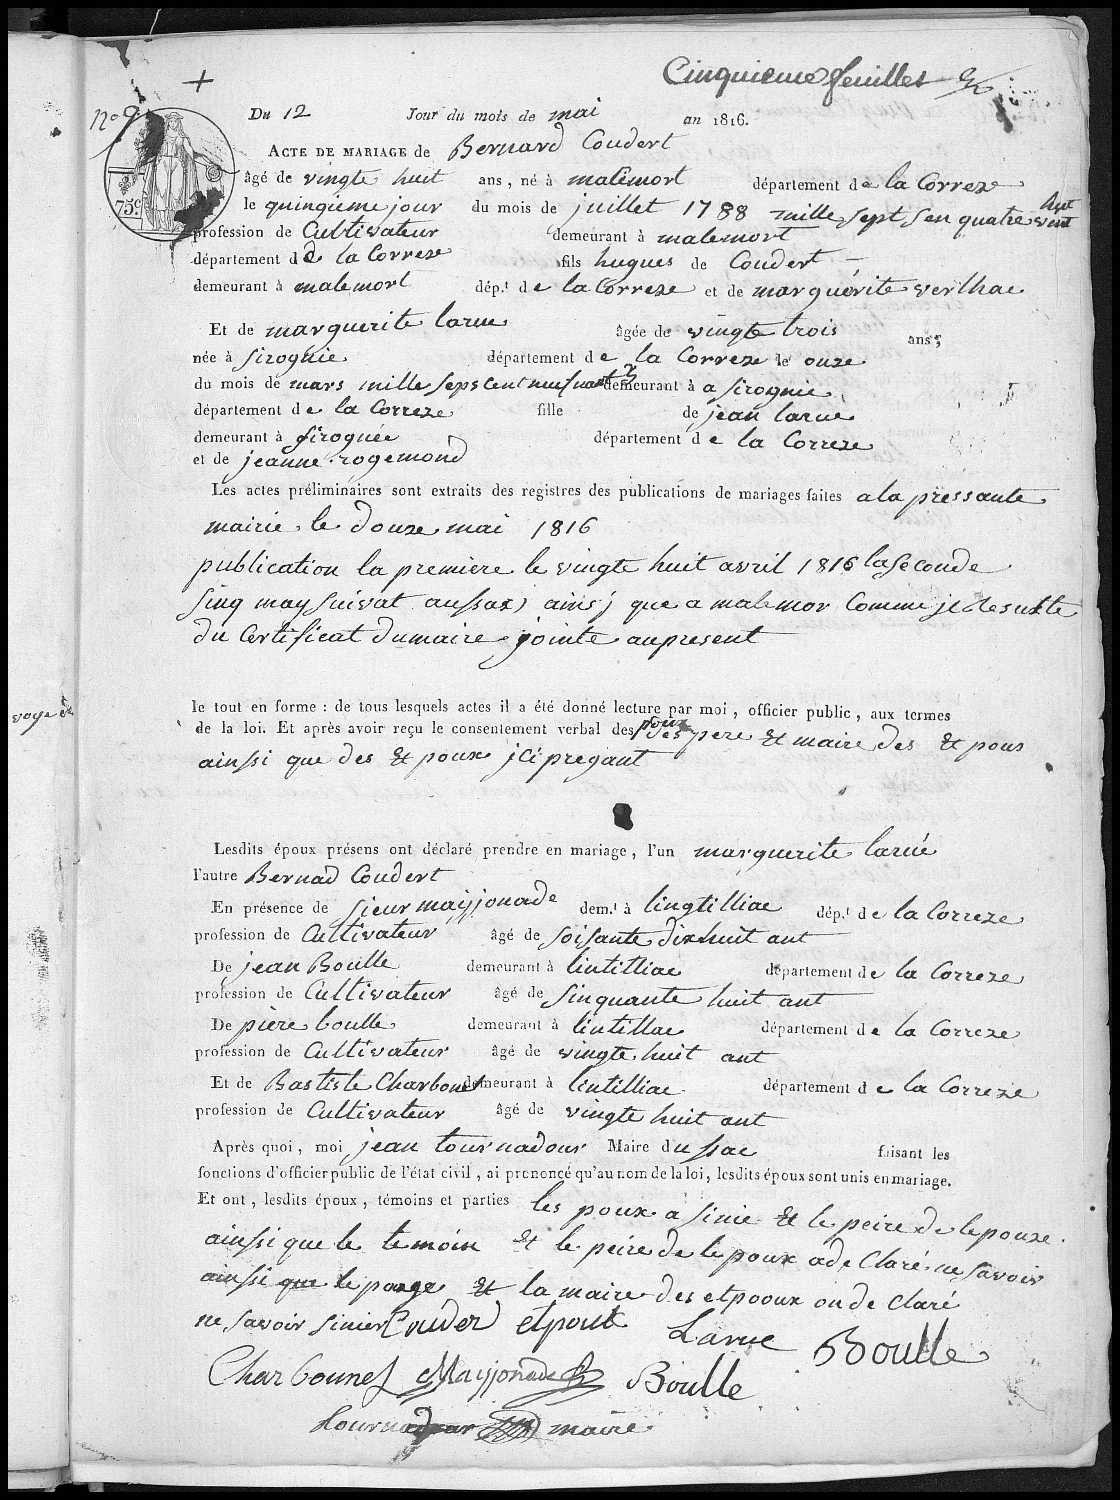 Cinquieme feuillet
+
n° 9
75.c
Du 12 Jour du mois de mai an 1816.
ACTE DE MARIAGE de Bernard Coudert
âgé de vingte huit ans, né à malemort département de la Correze
le quinzieme jour du mois de juillet 1788 mille sept sen quatre vint huit
profession de Cultivateur demeurant à malemort
département de la Correze fils hugues de Coudert
demeurant à malemort dép.t de la Correze et de marguérite verlhac
Et de marguerite larue âgée de vingte trois ans;
née à sirognie département de la Correze le onze
du mois de mars mille seps cent demeurant à a sirognie
département de la Correze fille de jean larue
demeurant à sirognée département de la Correze
et de jeanne rogemond
Les actes préliminaires sont extraits des registres des publications de mariages faites a la pressante
mairie le douze mai 1816
publication la première le vingte huit avril 1816 la seconde
sinq may suivat aussax) ainsj que a malemor Comme jl resulte
du Certificat du maire jointe au present
le tout en forme : de tous lesquels actes il a été donné lecture par moi, officier public, aux termes
de la loi. Et après avoir reçu le consentement verbal des pere et maire des et pous
ainssi que des et poux jci prezant
voye
Lesdits époux présens ont déclaré prendre en mariage, l'un marguerite larué
l'autre Bernad Coudert
En présence de sieur mayjonade dem.t à lingtilliac dép.t de la Correze
profession de Cultivateur âgé de soisante dix huit ant
De jean Boulle demeurant à lintilliac département de la Correze
profession de Cultivateur âgé de sinquante huit ant
De piere boulle demeurant à lintillac département de la Correze
profession de Cultivateur âgé de vingte huit ant
Et de Bastiste Charbonel demeurant à lintilliac département de la Correze
profession de Cultivateur âgé de vingte huit ant
Après quoi, moi jean tournadour Maire dussac faisant les
fonctions d'officier public de l'état civil, ai prononcé qu'au nom de la loi, lesdits époux sont unis en mariage.
Et ont, lesdits époux, témoins et parties les poux a sinie et le peire de lepouze
ainssi que le temoin et le peire de lepoux a de Claré ne savoir
ainssi que le et la maire des etpooux on de Claré
ne savoir sinier Couder etpout Larue Boulle
Charbounel Mayjonade Boulle
tournadour maire